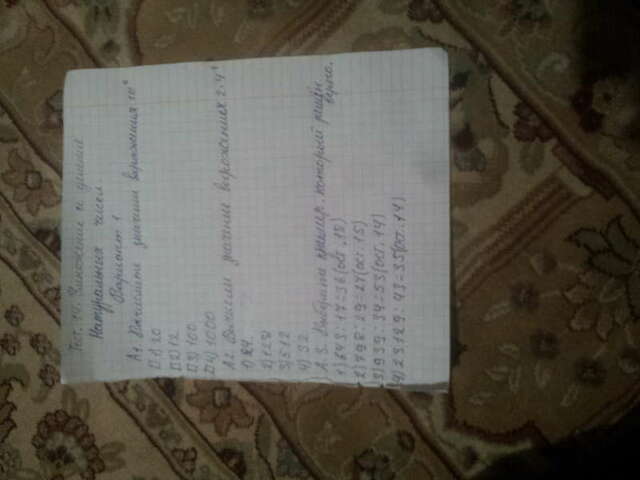 Тест. 14. Умножение и деление
Натуральных чисел.
Вариант 1
А1. Вычислите значение выражения 10
1) 20
2) 12
3) 100
4) 1000
А2. Вычисли значение выражениех 2·4
1) 24.
2) 128
3) 512
4) 32
А. 3. Выберите пример. который решён
верно.
1) 643:17=36(ост. 18)
2) 798:29=27(ост. 15)
3) 939:34=53(ост. 14)
4) 23129:43=35(ост. 14)